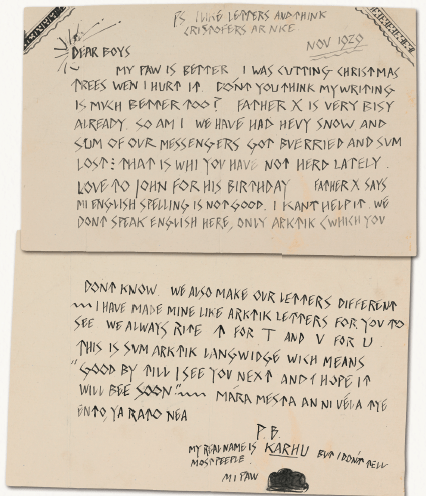 PS I LIKE LETTERS AND THINK
CRISTOFERS AR NICE
NOV 1929
DEAR BOYS
MY PAW IS BETTER I WAS CUTTING CHRISTMAS
TREES WEN I HURT IT. DONT YOU THINK MY WRITING
IS MUCH BETTER TOO? FATHER X IS VERY BISY
ALREADY. SO AM I WE HAVE HAD HEVY SNOW AND
SUM OF OUR MESSENGERS GOT BVERRIED AND SUM
LOST: THAT IS WHI YOU HAVE NOT HERD LATELY.
LOVE TO JOHN FOR HIS BIRTHDAY FATHER X SAYS
MI ENGLISH SPELLING IS NOT GOOD. I KANT HELP IT. WE
DONT SPEAK ENGLISH HERE, ONLY ARKTIK (WHICH YOU
DONT KNOW. WE ALSO MAKE OUR LETTERS DIFFERENT
~~ I HAVE MADE MINE LIKE ARKTIK LETTERS FOR YOU TO
SEE WE ALWAYS RITE ↑ FOR T AND V FOR U.
THIS IS SUM ARKTIK LANGWIDGE WICH MEANS
"GOOD BY TILL I SEE YOU NEXT AND I HOPE IT
WILL BEE SOON" ~~ MÁRA MESTA AN NI VÉLA TYE
ENTO, YA RATO NEA
P.B.
MY REAL NAME IS KARHU BUT I DON'T TELL
MOST PEEPLE.
MI PAW